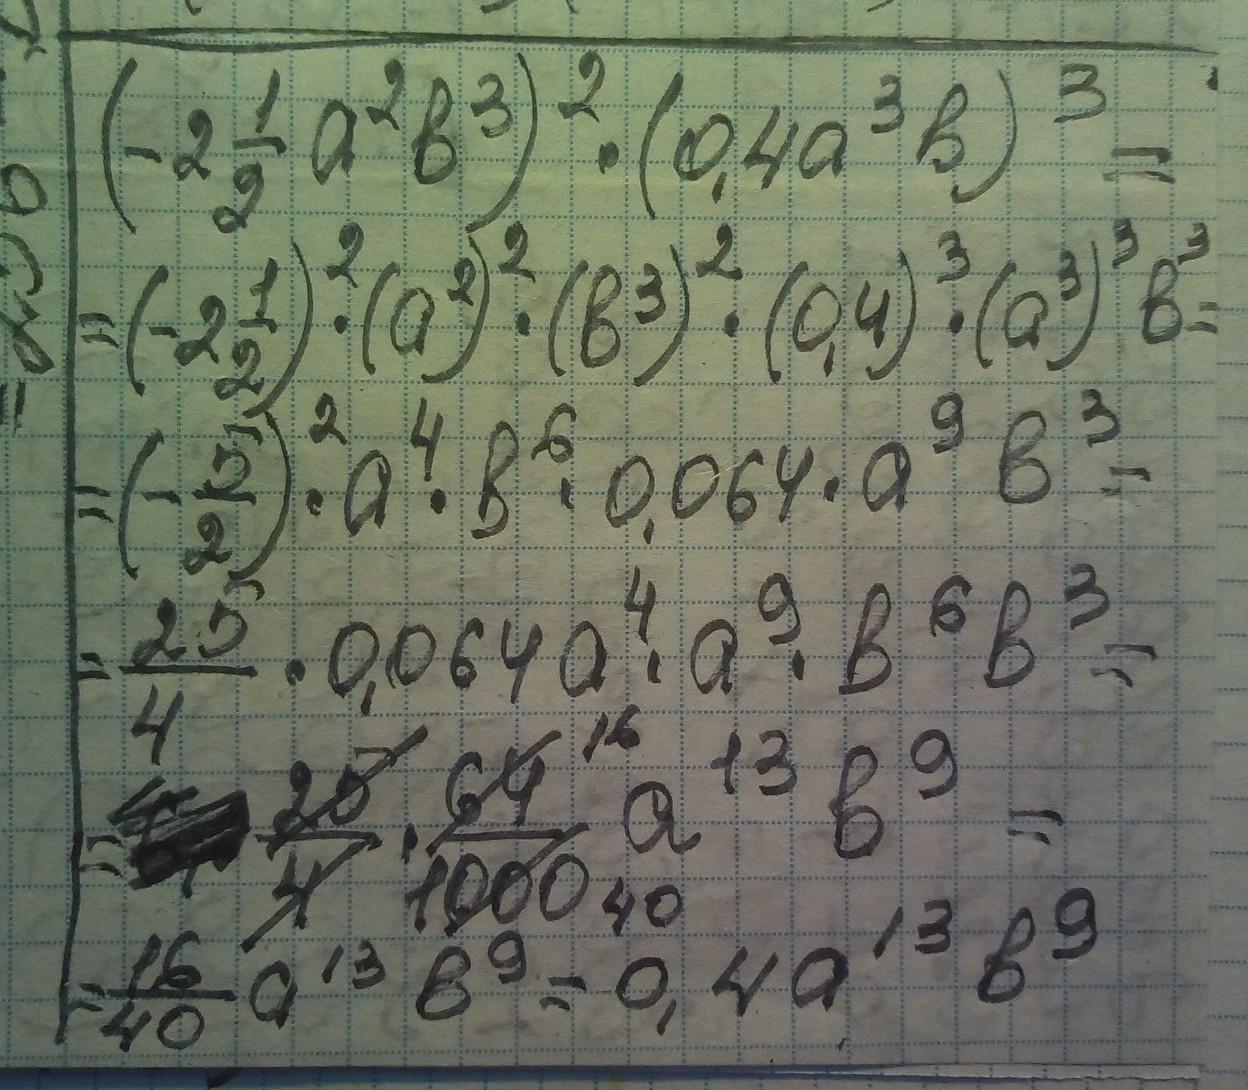 (-2 1/2 a²b³)² · (0,4a³b)³ =
= (-2 1/2)² · (a²)² · (b³)² · (0,4)³ · (a³)³ b³ =
= (-5/2)² · a⁴ · b⁶ · 0,064 · a⁹ b³ =
= 25/4 · 0,064 a⁴ · a⁹ · b⁶ b³ =
= 25/4 · 64/1000 16 40 a¹³ b⁹ =
= 16/40 a¹³ b⁹ = 0,4a¹³ b⁹